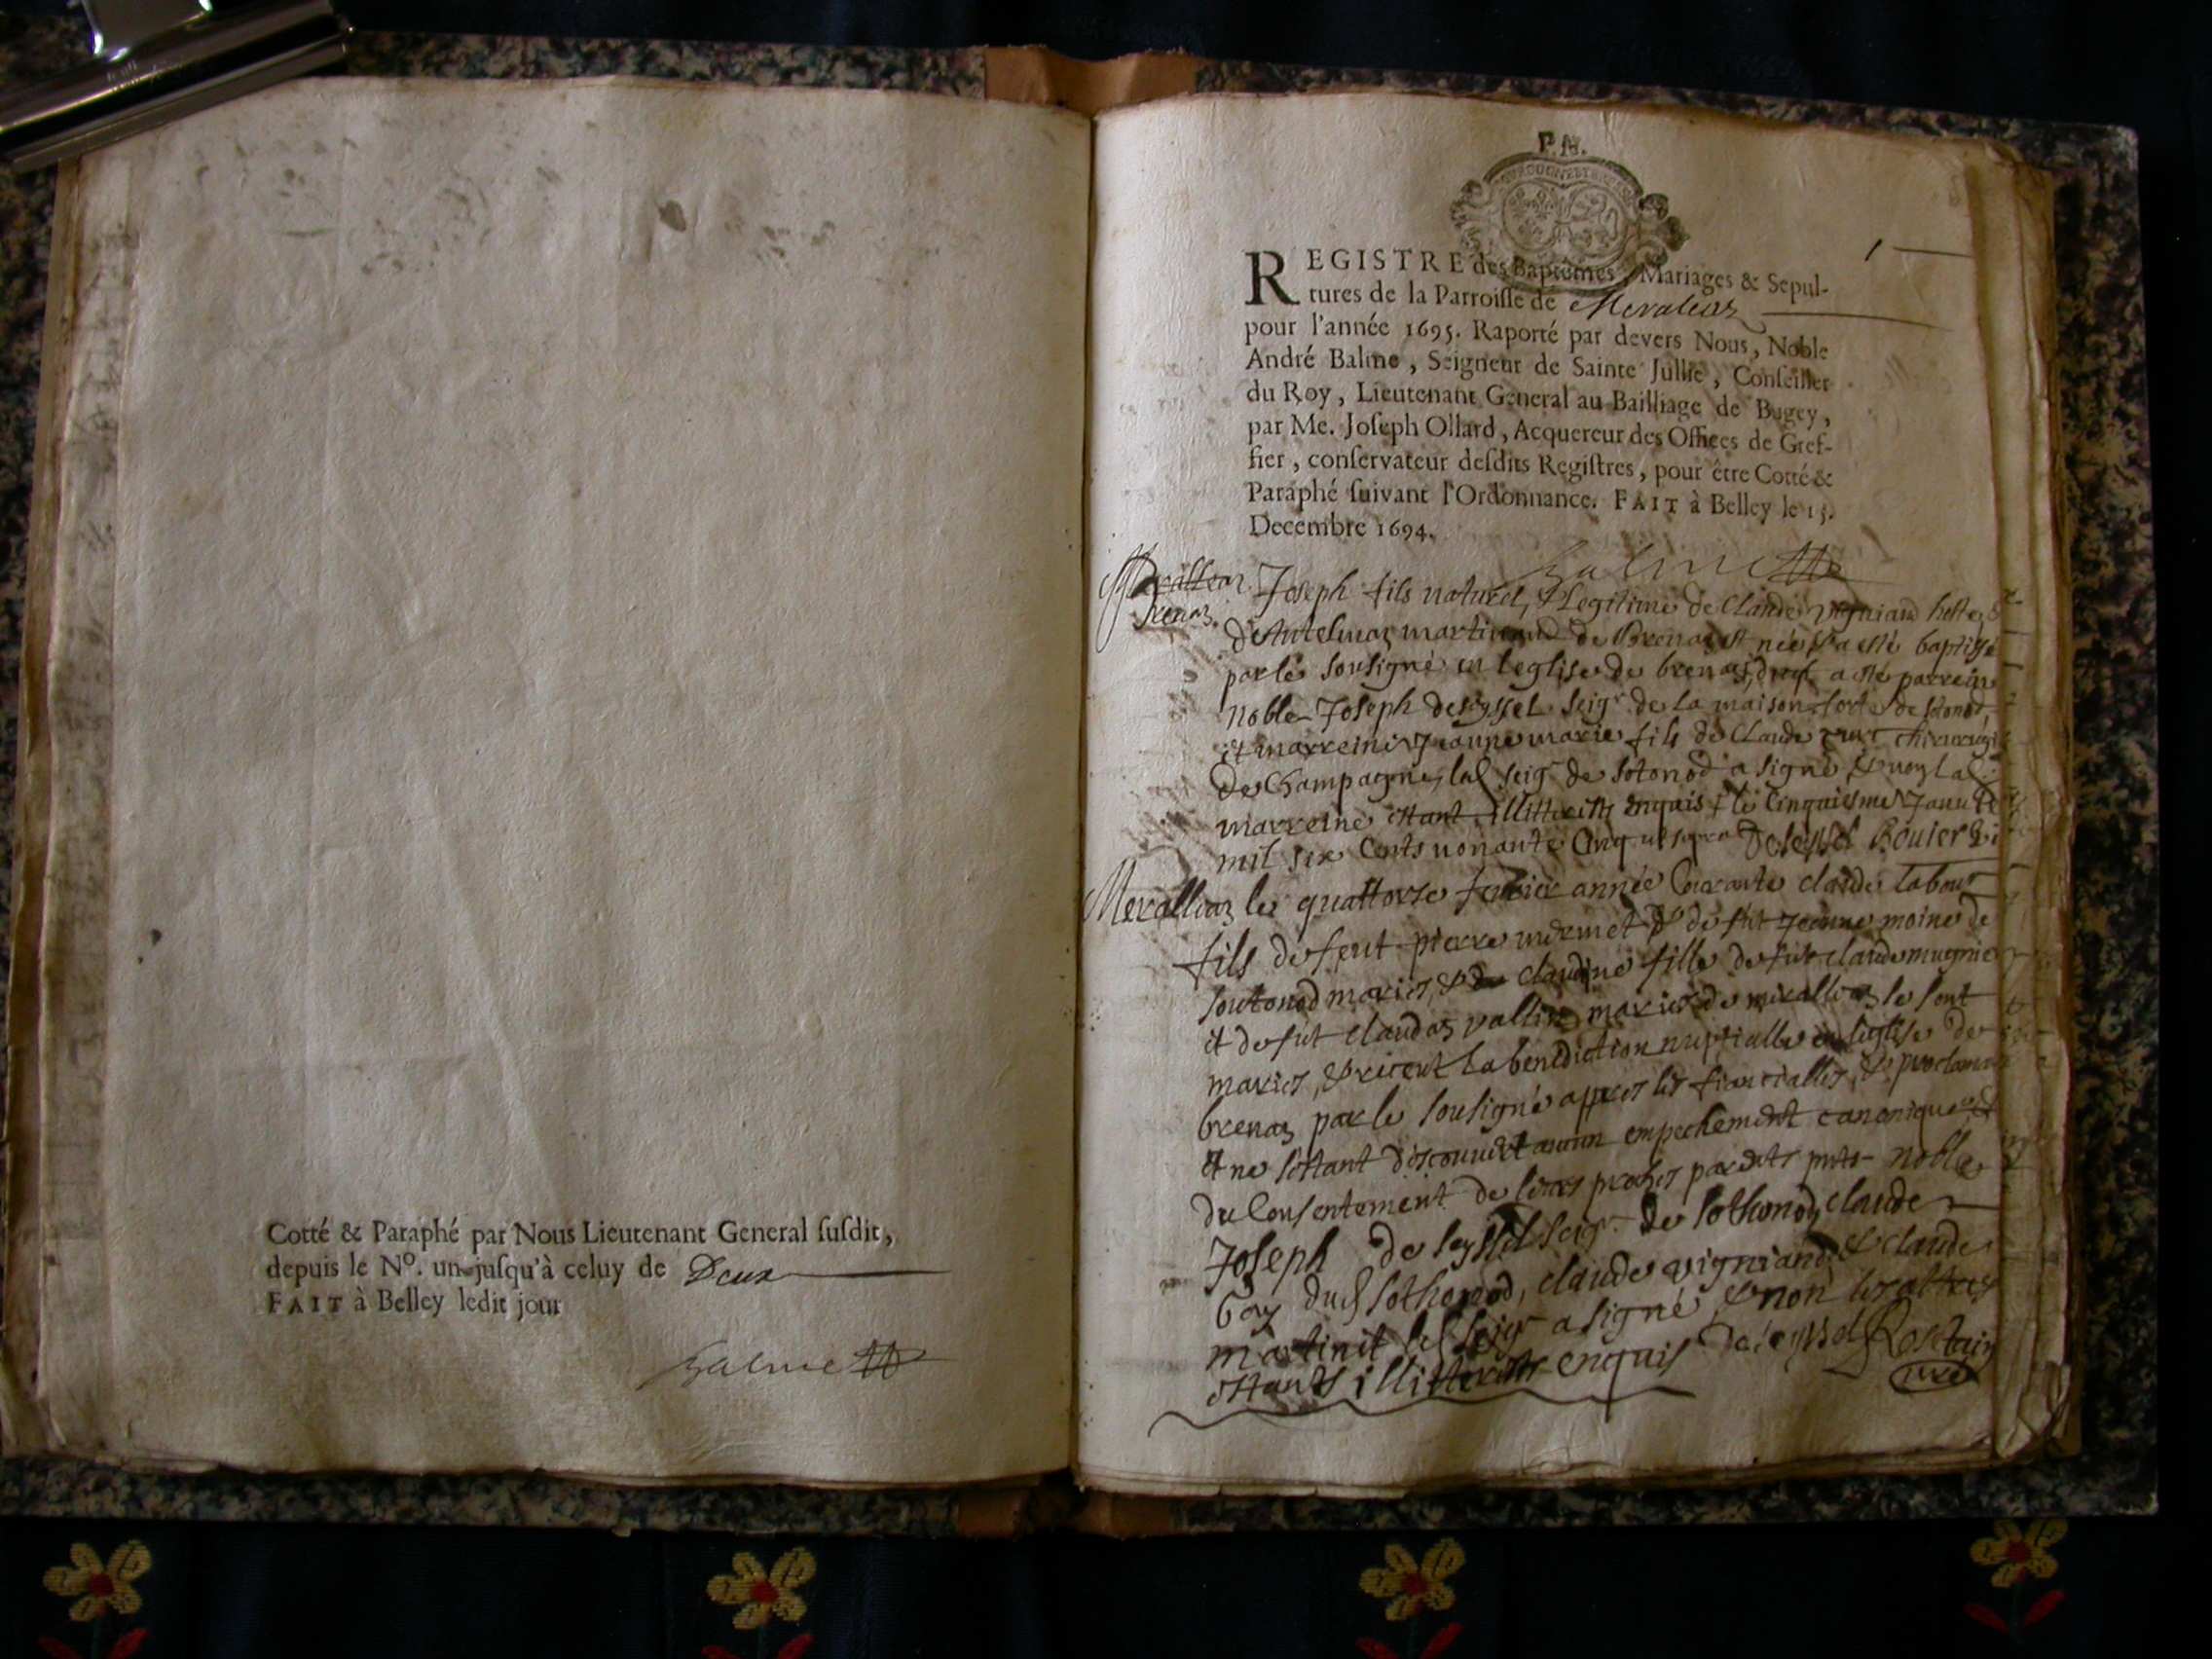 Cotté & Paraphé par Nous Lieutenant General ſuſdit,
depuis le No. un juſqu'à celuy de Deux
FAIT à Belley ledit jour
Balme
P.N.
1
REGISTRE des Baptêmes, Mariages & Sepul-
tures de la Parroiſſe de Meraleaz
pour l'année 1695. Raporté par devers Nous, Noble
André Balme, Seigneur de Sainte Jullie, Conſeiller
du Roy, Lieutenant General au Bailliage de Bugey,
par Me. Joſeph Ollard, Acquereur des Offices de Gref-
fier, conſervateur deſdits Regiſtres, pour être Cotté &
Paraphé ſuivant l'Ordonnance. FAIT à Belley le 15.
Decembre 1694.
Balme
Brenaz
Joseph fils naturel & Legitime de Claude vigniand
d'Antelmaz martinand de Brenaz est née & a esté baptissé
par le sousigné en leglise de brenaz, a esté parrein
Noble Joseph deseyssel seigr de la maison forte de sotonod
et marreine Jeanne marie fille de Claude chirurgi
de Champagne, led seigr de sotonod a signé & non la
marreine estant illitteree enquis le cinquiesme Janu
mil six cents nonante cinq ut supra Deseyssel
Meralliaz le quattorse feuvrier année Courante claude labour
fils de feut pierre mermet & de fut Jeanne moine de
soutonod mariés, & claudine fille de fut claude mugnie
et de fut claudaz vallin mariés de meralliaz se sont
mariés, & receut la benediction nuptialle en leglise de
brenaz par le sousigné appres les fiancialles, & proclama
et ne s'estant descouvert aucun empechement canonique et
du Consentement de leurs proches parents pnts noble
Joseph de seyssel seigr de sothonod, claude
Gay dud sothonod, claude vigniand & claude
martinit led seigr a signé & non les altres
estants illitterés enquis Deseyssel Rostaing
curé